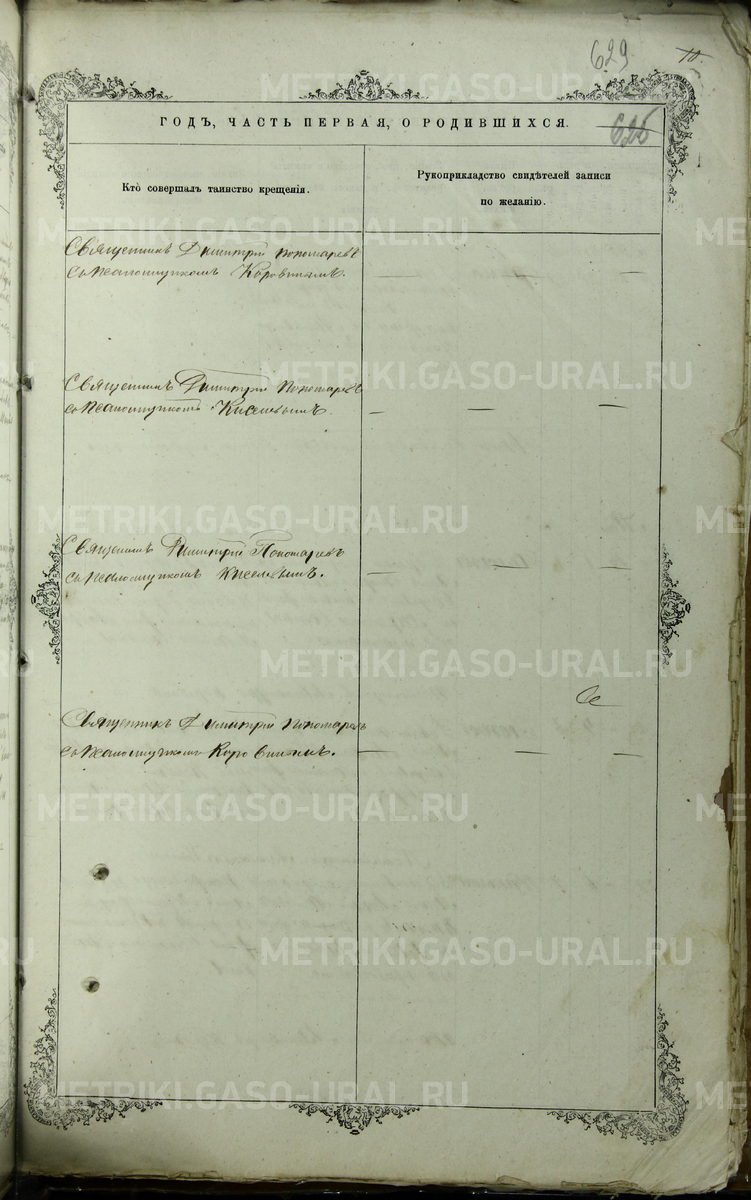 629
10.
625
ГОДЪ, ЧАСТЬ ПЕРВАЯ, О РОДИВШИХСЯ.
Кто совершалъ таинство крещенія.
Рукоприкладство свидѣтелей записи
по желанію.
Священникъ Димитрій Пономаревъ
съ псаломщикомъ Коровинымъ.
Священникъ Димитрій Пономаревъ
съ псаломщикомъ Киселевымъ.
Священникъ Димитрій Пономаревъ
съ псаломщикомъ Киселевымъ.
Священникъ Димитрій Пономаревъ
съ псаломщикомъ Коровинымъ.
METRIKI.GASO-URAL.RU